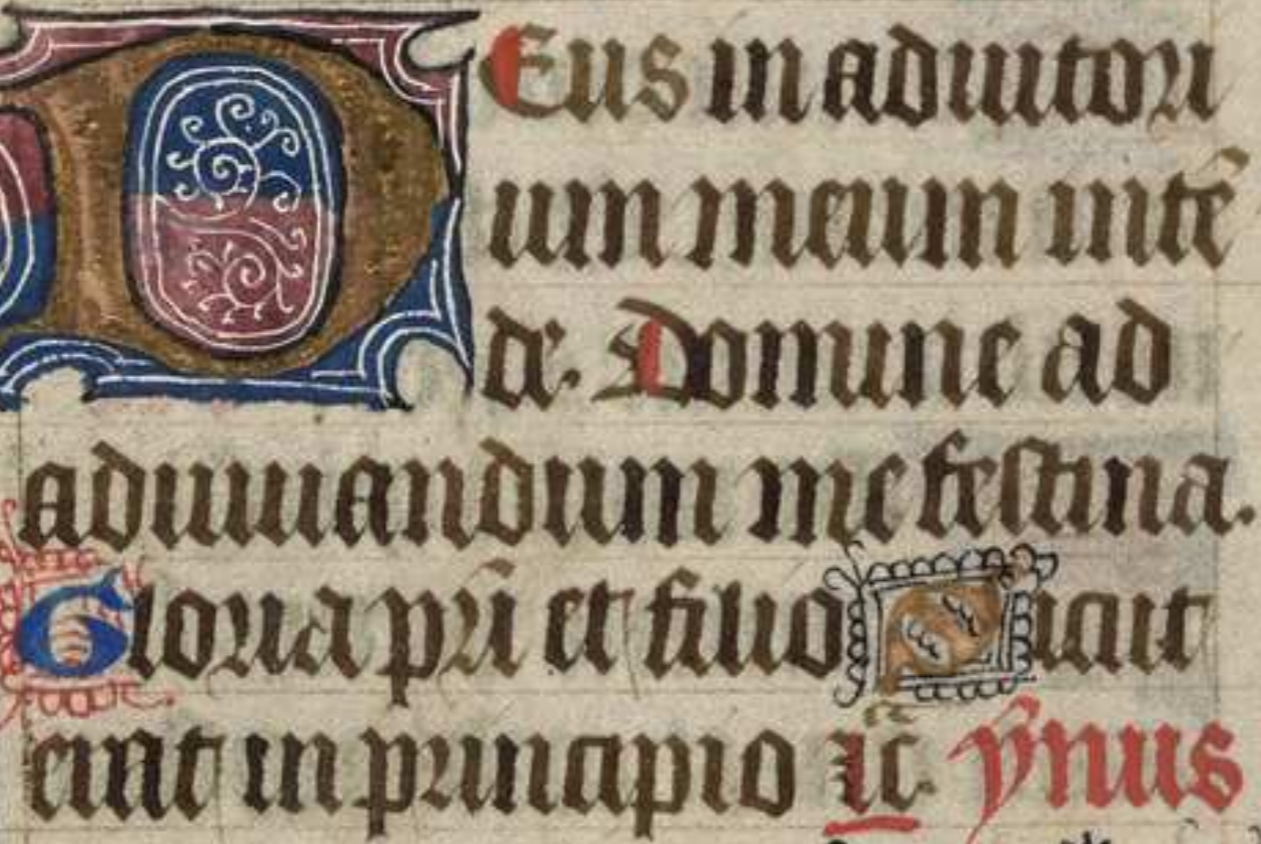 DEus in adiutori
um meum intē
de. Domine ad
adiuuandum me festina.
Gloria pr̄i et filio Sicut
erat in principio ic̄. ȳnus